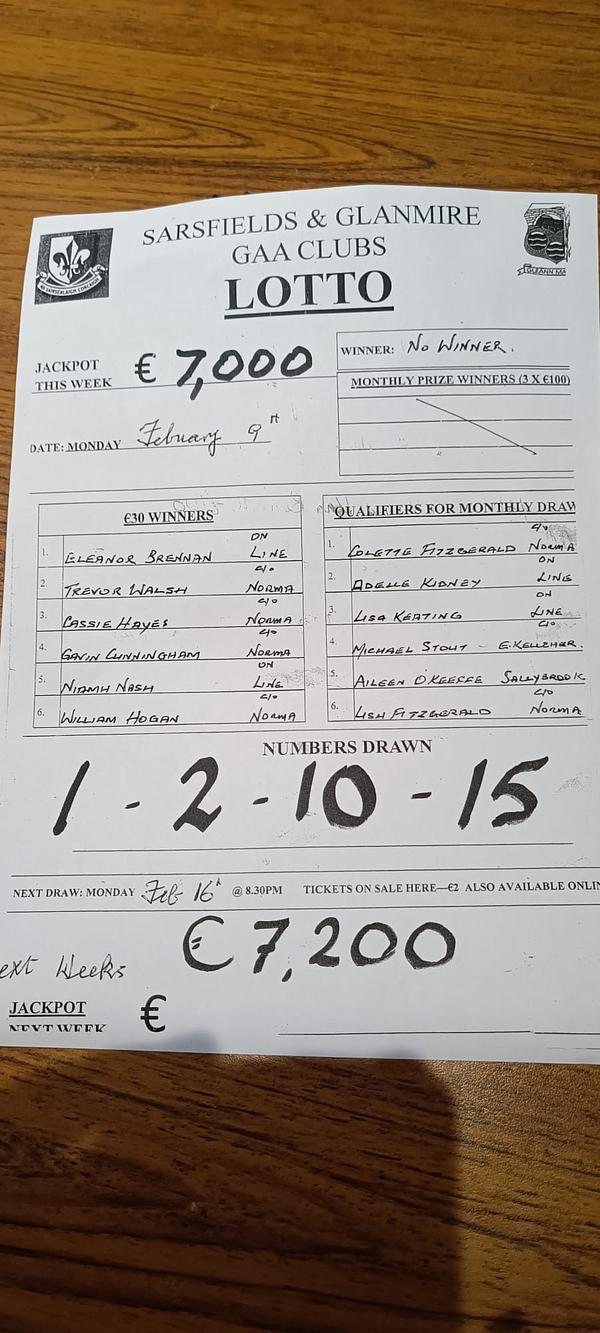 SARSFIELDS & GLANMIRE
GAA CLUBS
LOTTO
GLEANN MA
JACKPOT
THIS WEEK
€ 7,000
WINNER: NO WINNER.
MONTHLY PRIZE WINNERS (3 X €100)
DATE: MONDAY February 9th
€30 WINNERS
1. ELEANOR BRENNAN ON LINE
2. TREVOR WALSH C/O NORMA
3. CASSIE HAYES C/O NORMA
4. GAVIN CUNNINGHAM C/O NORMA
5. NIAMH NASH ON LINE
6. WILLIAM HOGAN C/O NORMA
QUALIFIERS FOR MONTHLY DRAW
1. COLETTE FITZGERALD C/O NORMA
2. ADELLE KIDNEY ON LINE
3. LISA KEATING ON LINE
4. MICHAEL STOUT - C/O E.KELLEHER.
5. AILEEN O'KEEFFE SALLYBROOK
6. LISA FITZGERALD C/O NORMA
NUMBERS DRAWN
1 - 2 - 10 - 15
NEXT DRAW: MONDAY Feb 16th @ 8.30PM TICKETS ON SALE HERE—€2 ALSO AVAILABLE ONLIN
ext Weeks €7,200
JACKPOT €
NEXT WEEK